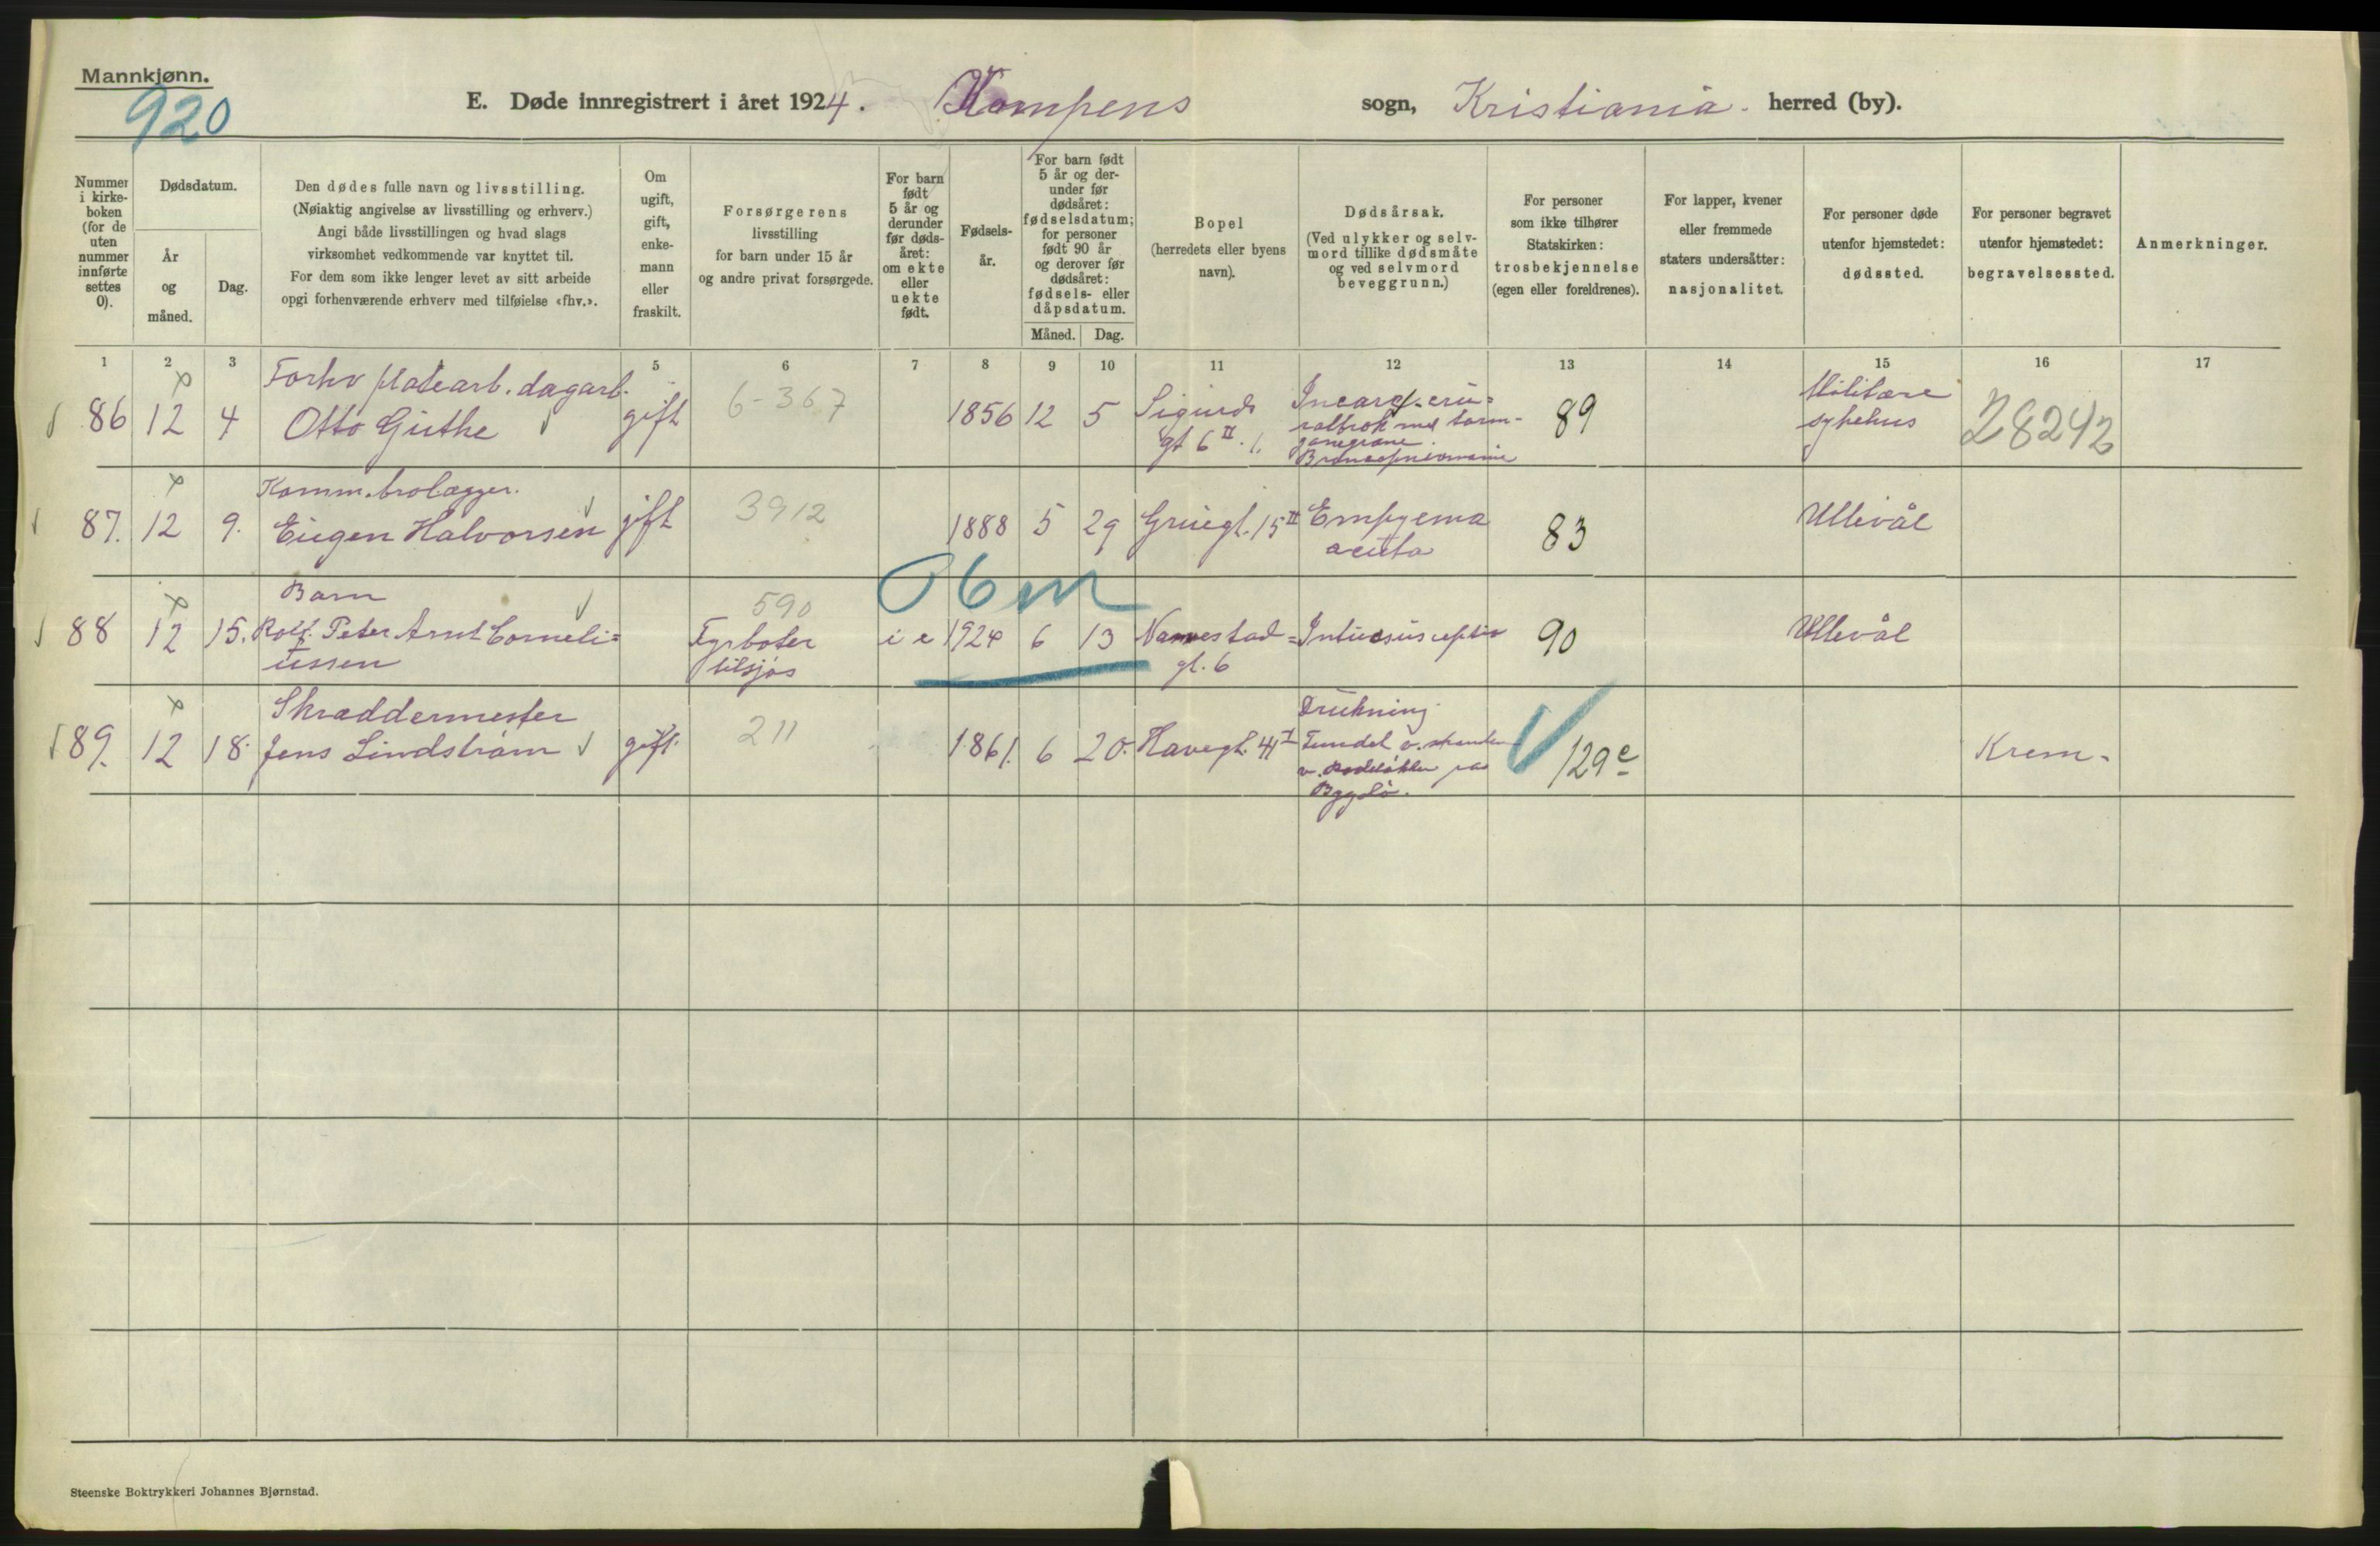 Mannkjønn.
920
E. Døde innregistrert i året 1924. Kampens sogn, Kristiania herred (by).
Nummer i kirke-boken (for de uten nummer innførte settes 0).
Dødsdatum.
År og måned.
Dag.
Den dødes fulle navn og livsstilling.
(Nøiaktig angivelse av livsstilling og erhverv.)
Angi både livsstillingen og hvad slags
virksomhet vedkommende var knyttet til.
For dem som ikke lenger levet av sitt arbeide
opgi forhenværende erhverv med tilføielse «fhv.».
Om ugift, gift, enke-mann eller fraskilt.
Forsørgerens
livsstilling
for barn under 15 år
og andre privat forsørgede.
For barn født 5 år og derunder før døds-året: om ekte eller uekte født.
Fødsels-år.
For barn født 5 år og der-under før dødsåret: fødselsdatum; for personer født 90 år og derover før dødsåret: fødsels- eller dåpsdatum.
Måned. Dag.
Bopel
(herredets eller byens
navn).
Dødsårsak.
(Ved ulykker og selv-
mord tillike dødsmåte
og ved selvmord
beveggrunn.)
For personer
som ikke tilhører
Statskirken:
trosbekjennelse
(egen eller foreldrenes).
For lapper, kvener
eller fremmede
staters undersåtter:
nasjonalitet.
For personer døde
utenfor hjemstedet:
dødssted.
For personer begravet
utenfor hjemstedet:
begravelsessted.
Anmerkninger.
1 2 3 5 6 7 8 9 10 11 12 13 14 15 16 17
Forhv platearb. dagarb.
86 12 4 Otto Guthe gift 6-367 1856 12 5
Sigurds
gt 6 II.
89
Militære
sykehus
28242
Komm. brolægger.
87. 12 9. Eugen Halvorsen gift 3912 1888 5 29 Gruegt. 15 II
Empyema
acuta
83 Ullevål
Barn
88 12 15. Rolf Peter Arnt Corneli=
ussen
590
Fyrbøter
tilsjøs
i e 1924 6 13
06m
Nannestad=
gt. 6
Intussusceptio
90 Ullevål
Skræddermester
89. 12 18. Jens Lindstrøm gift. 211 1861. 6 20. Havegt. 4 I
Drukning
Fundet v. stranden
v.
Bygdø.
129 c
Krem-
Steenske Boktrykkeri Johannes Bjørnstad.